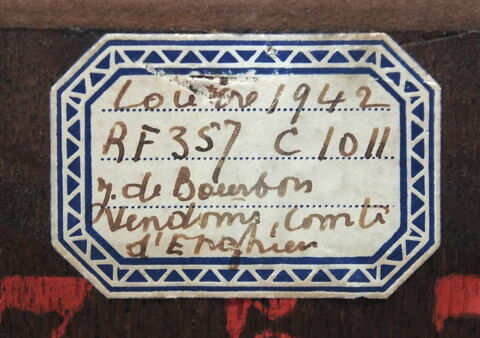 Louvre 1942
RF 357 C 1011
J. de Bourbon
Vendôme, Comte
d'Enghien